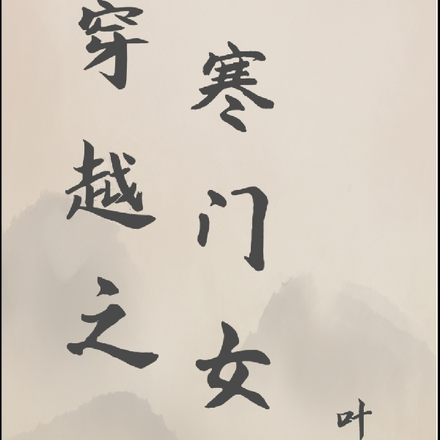 穿越之
寒门女
叶